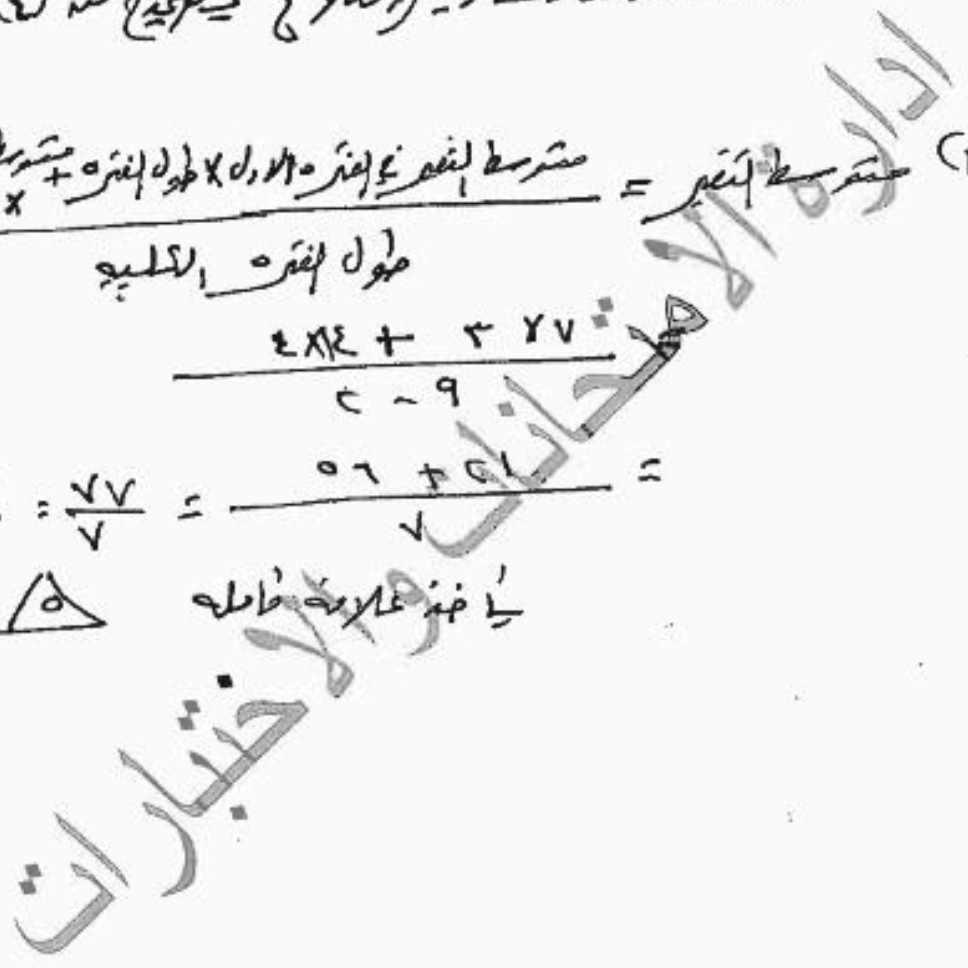 متوسط التغير = متوسط التغير في الفترة الاولى × طول الفترة +
طول الفترة الكلية
٧ × ٣ + ١٤ × ٤
٩ - ٢
= ٢١ + ٥٦ = ٧٧ =
٧ ٧
يأخذ علامة كاملة ٥
ادارة الامتحانات والاختبارات